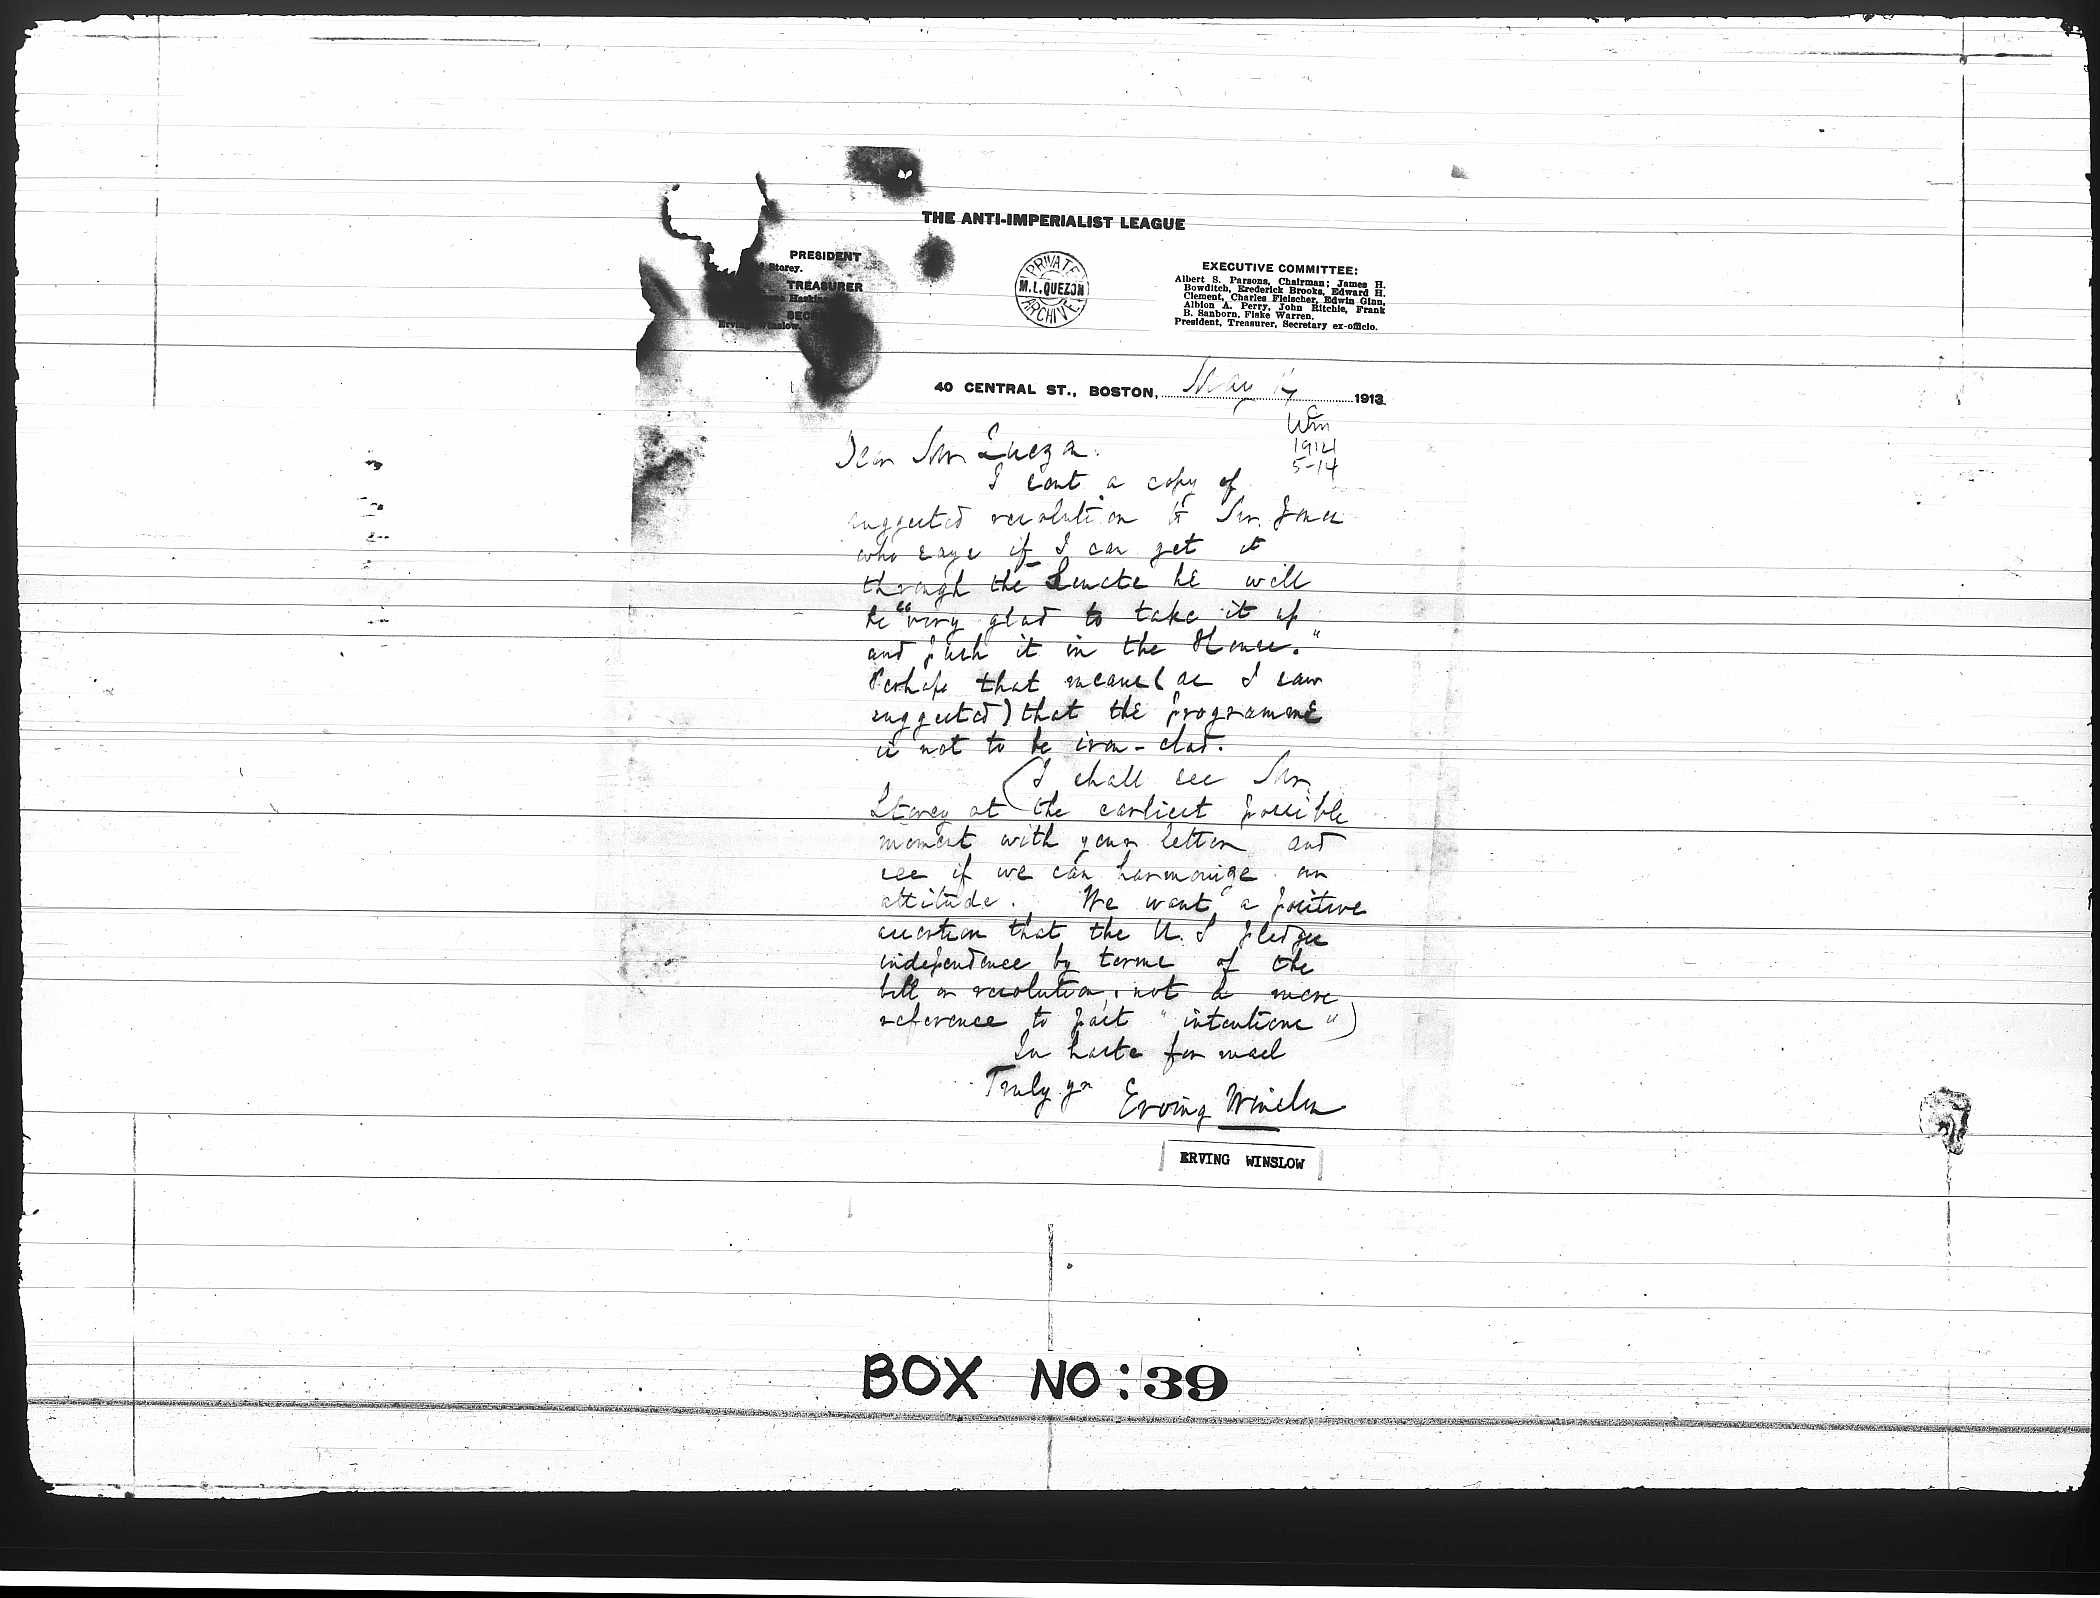 THE ANTI-IMPERIALIST LEAGUE
PRESIDENT
Storey.
TREASURER
SEC
Erving Winslow.
PRIVATE
M. L. QUEZON
ARCHIVE
EXECUTIVE COMMITTEE:
Albert S. Parsons, Chairman; James H.
Bowditch, Erederick Brooks, Edward H.
Clement, Charles Fleischer, Edwin Ginn,
Albion A. Perry, John Ritchie, Frank
B. Sanborn, Fiske Warren.
President, Treasurer, Secretary ex-officio.
40 CENTRAL ST., BOSTON, May 1913
1914
5-14
Dear Mr. Quezon.
I sent a copy of
suggested resolution to Mr. Jones
who says if I can get it
through the Senate he will
be "very glad to take it up
and push it in the House."
Perhaps that means (as I saw
suggested) that the programme
is not to be iron-clad.
(I shall see Mr.
Storey at the earliest possible
moment with your letter and
see if we can harmonize our
attitude. We want a positive
assertion that the U. S pledges
independence by terms of the
bill or resolution, not a mere
reference to past "intentions")
In haste for mail
Truly yrs Erving Winslow
ERVING WINSLOW
BOX NO: 39